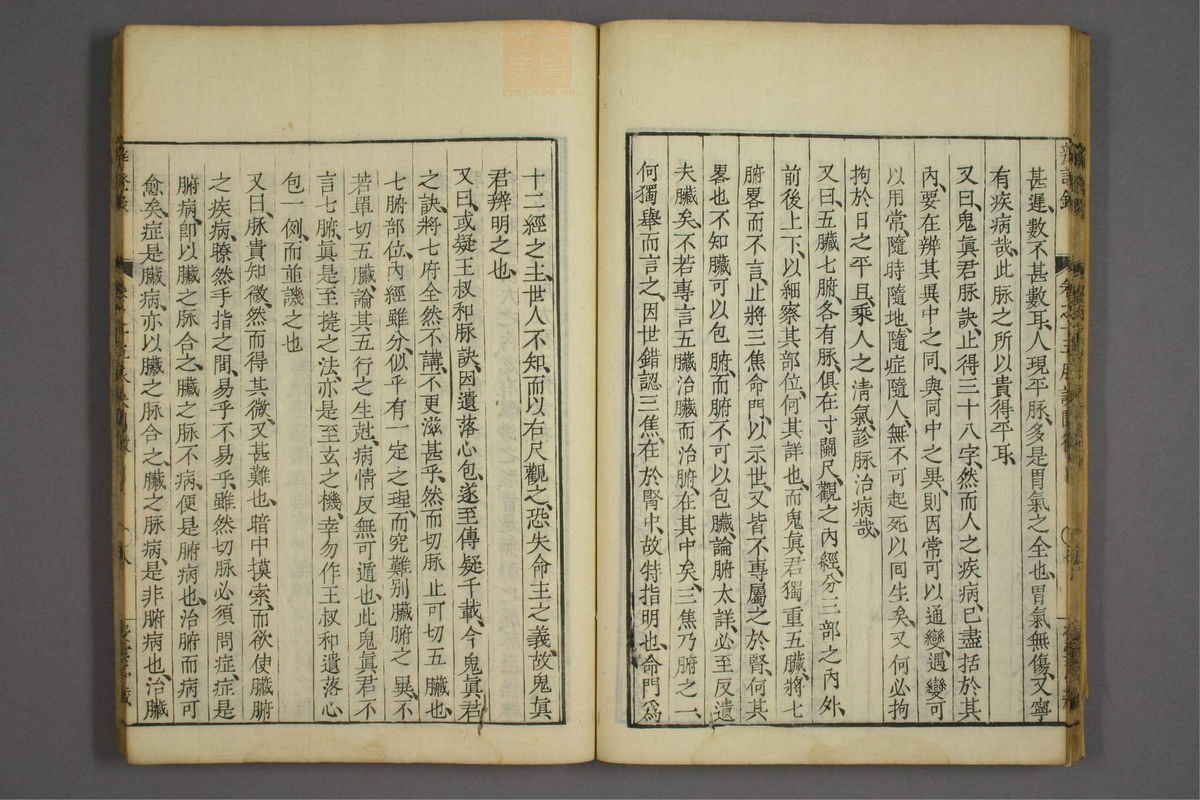 甚遲、數不甚數耳、人現平脉、多是胃氣之全也、胃氣無傷、又寧
有疾病哉、此脉之所以貴得平耳、
又曰、鬼眞君脉訣、止得三十八字、然而人之疾病、已盡括於其
內、要在辨其異中之同、與同中之異、則因常可以通變、遇變可
以用常、隨時隨地、隨症隨人、無不可起死以回生矣、又何必拘
拘於日之平旦、乘人之清氣、診脉治病哉、
又曰、五臟七腑、各有脉、俱在寸關尺、觀之內經、分三部之內外、
前後上下、以細察其部位、何其詳也、而鬼眞君獨重五臟、將七
腑畧而不言、止將三焦命門、以示世、又皆不專屬之於腎、何其
畧也、不知臟可以包腑、而腑不可以包臟、論腑太詳、必至反遺
夫臟矣、不若專言五臟、治臟而治腑、在其中矣、三焦乃腑之一、
何獨舉而言之、因世錯認三焦、在於腎中、故特指明也、命門爲
十二經之主、世人不知、而以右尺觀之、恐失命主之義、故鬼眞
君辨明之也、
又曰、或疑王叔和脉訣、因遺落心包、遂至傳疑千載、今鬼眞君
之訣、將七府全然不講、不更滋甚乎、然而切脉止可切五臟也、
七腑部位、內經雖分、似乎有一定之理、而究難别臟腑之異、不
若單切五臟、論其五行之生尅、病情反無可遁也、此鬼眞君不
言七腑、眞是至㨗之法、亦是至玄之機、幸勿作王叔和遺落心
包一例、而並譏之也
又曰、脉貴知微、然而得其微、又甚難也、暗中摸索、而欲使臟腑
之疾病、瞭然手指之間、易乎不易乎、雖然切脉必須問症、症是
腑病、卽以臟之脉合之、臟之脉不病、便是腑病也、治腑而病可
愈矣、症是臟病、亦以臟之脉合之、臟之脉病、是非腑病也、治臟